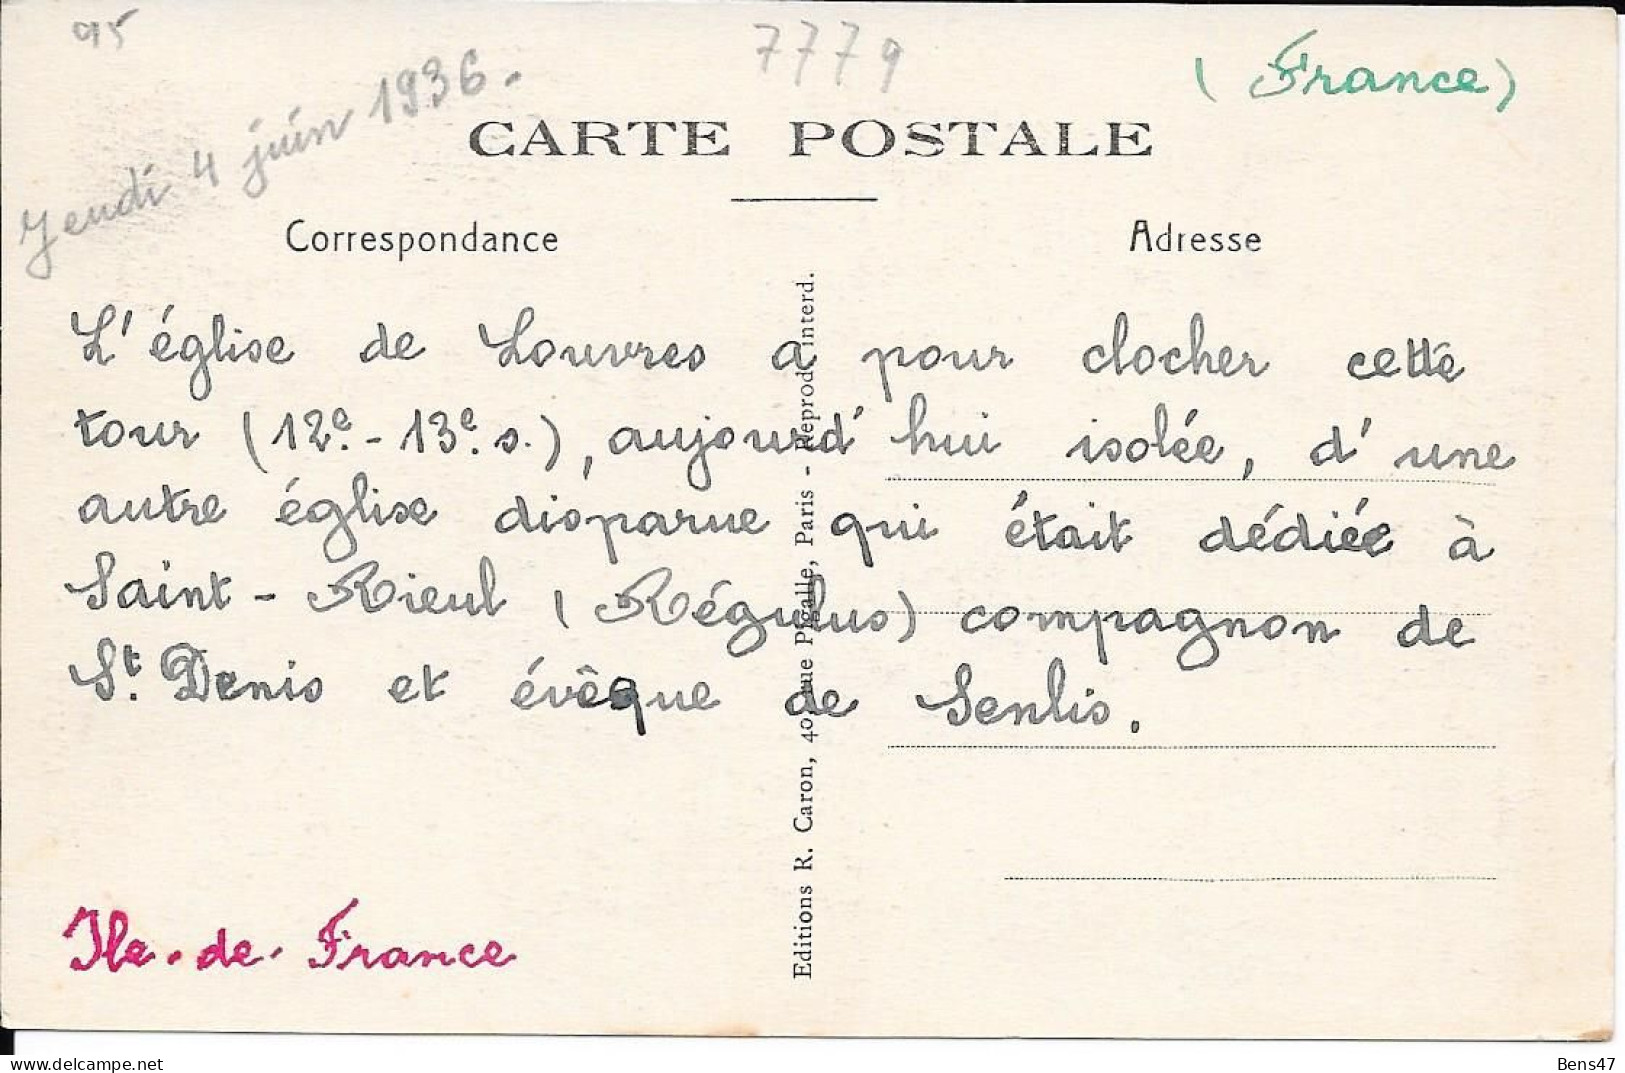 95
7779
( France)
Jeudi 4 juin 1936.
CARTE POSTALE
Correspondance
Adresse
L'église de Louvres a pour clocher cette
tour (12e.-13e.s.), aujourd'hui isolée, d'une
autre église disparue qui était dédiée à
Saint-Rieul (Régulus) compagnon de
St. Denis et évêque de Senlis.
Ile-de-France
Editions R. Caron, 40 rue Pigalle, Paris - Reprod. interd.
Bens47